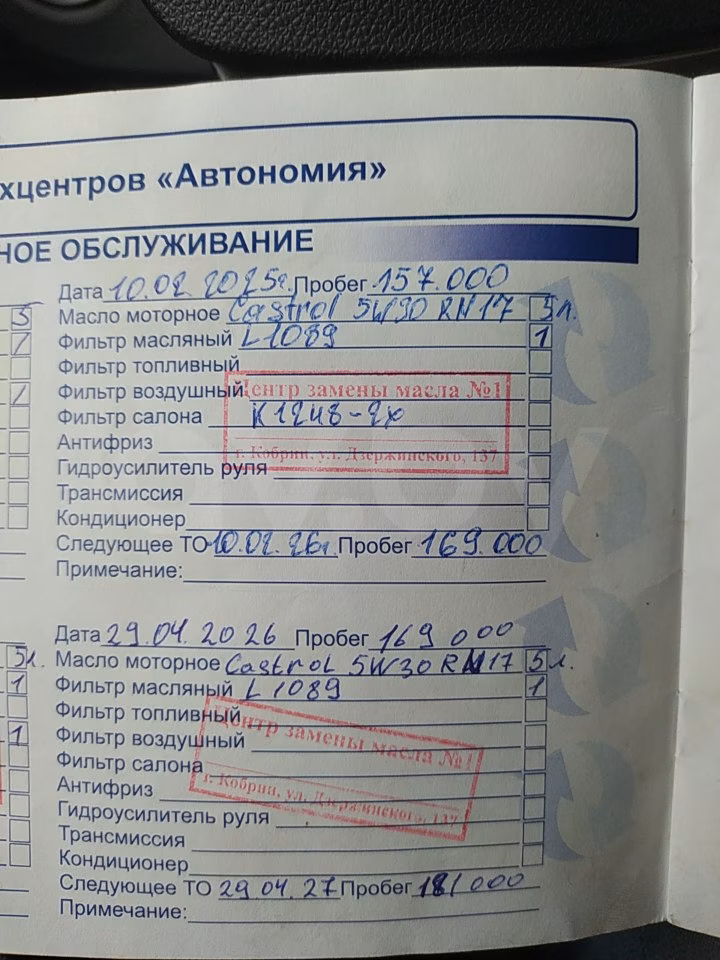 хцентров «Автономия»
НОЕ ОБСЛУЖИВАНИЕ
Дата 10.02.2025г. Пробег 157.000
Масло моторное Castrol 5W30 RN17 5л.
Фильтр масляный L1089 1
Фильтр топливный
Фильтр воздушный
Центр замены масла №1
Фильтр салона К1248-2х
Антифриз
г. Кобрин, ул. Дзержинского, 137
Гидроусилитель руля
Трансмиссия
Кондиционер
Следующее ТО 10.02.26г. Пробег 169.000
Примечание:
Дата 29.04.2026 Пробег 169 000
5л. Масло моторное Castrol 5W30 RN17 5л.
1 Фильтр масляный L1089 1
Фильтр топливный
Центр замены масла №1
1 Фильтр воздушный
Фильтр салона
г. Кобрин, ул. Дзержинского, 137
Антифриз
Гидроусилитель руля
Трансмиссия
Кондиционер
Следующее ТО 29.04.27 Пробег 181000
Примечание: